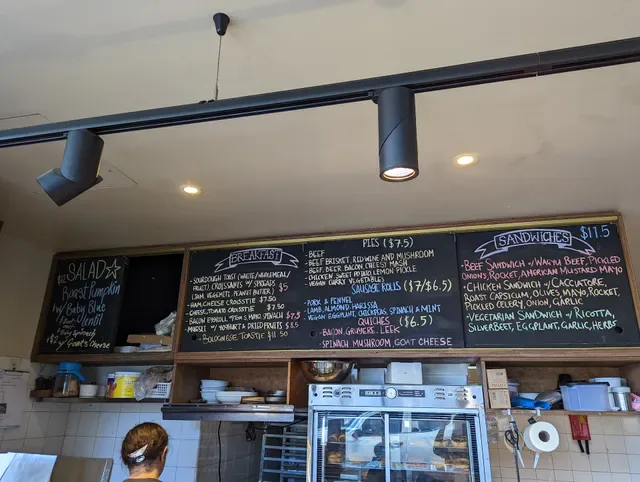 SALAD
Roast Pumpkin
w/ Baby Blue
Lentil
w/ Goat's Cheese
BREAKFAST
- SOURDOUGH TOAST (WHITE/WHOLEMEAL/
FRUIT) CROISSANTS w/ SPREADS
(JAM, VEGEMITE, PEANUT BUTTER) $5
- HAM, CHEESE CROISSTIE $7.50
- CHEESE, TOMATO CROISSTIE $7.50
- MUESLI w/ YOGHURT & DRIED FRUITS $8.5
- BOLOGNESE TOASTIE $11.50
PIES ($7.5)
- BEEF
- BEEF BRISKET, RED WINE AND MUSHROOM
- BEEF, BEER, BACON, CHEESY MASH
- CHICKEN, SWEET POTATO, LEMON PICKLE
- VEGAN CURRY VEGETABLES
SAUSAGE ROLLS ($7/$6.5)
- PORK & FENNEL
- LAMB, ALMOND, HARISSA
- VEGAN EGGPLANT, CHICKPEAS, SPINACH & MINT
QUICHES ($6.5)
- BACON, GRUYERE, LEEK
- SPINACH, MUSHROOM, GOAT CHEESE
SANDWICHES $11.5
- BEEF SANDWICH w/ WAGYU BEEF, PICKLED
ONIONS, ROCKET, AMERICAN MUSTARD MAYO
- CHICKEN SANDWICH w/ CACCIATORE,
ROAST CAPSICUM, OLIVES MAYO, ROCKET,
PICKLED CELERY, ONION, GARLIC
- VEGETARIAN SANDWICH w/ RICOTTA,
SILVERBEET, EGGPLANT, GARLIC, HERBS